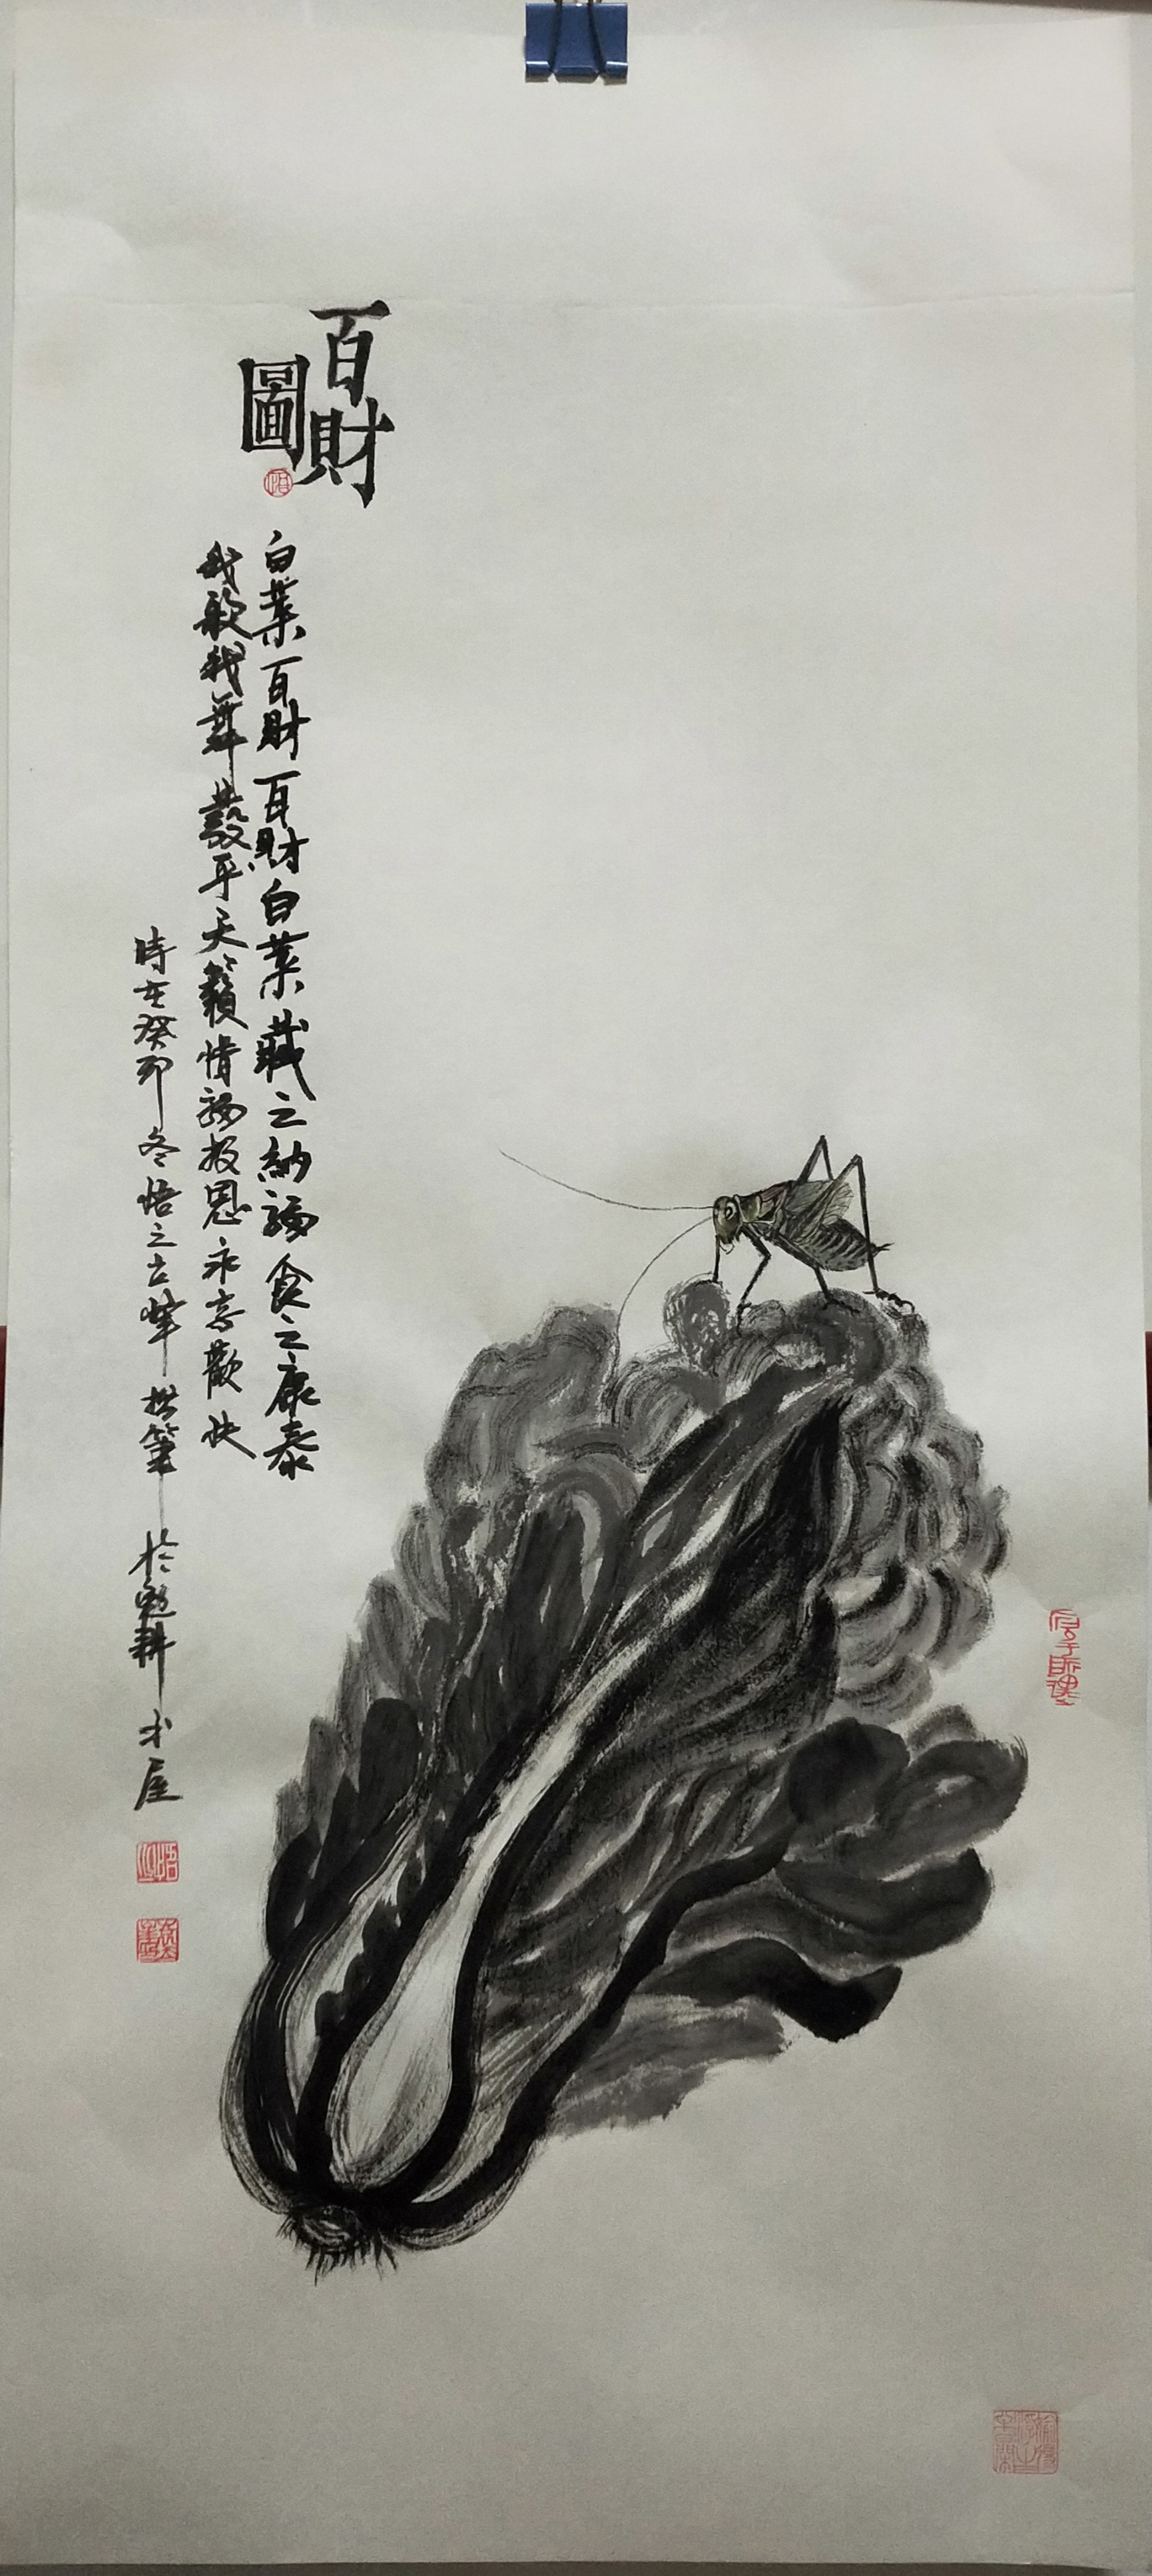 百財
圖
白菜百財百財白菜藏之納福食之康泰
我歌我舞發乎天籟情福报恩永享歡快
時在癸卯冬悟之古華拱筆於勉耕书屋